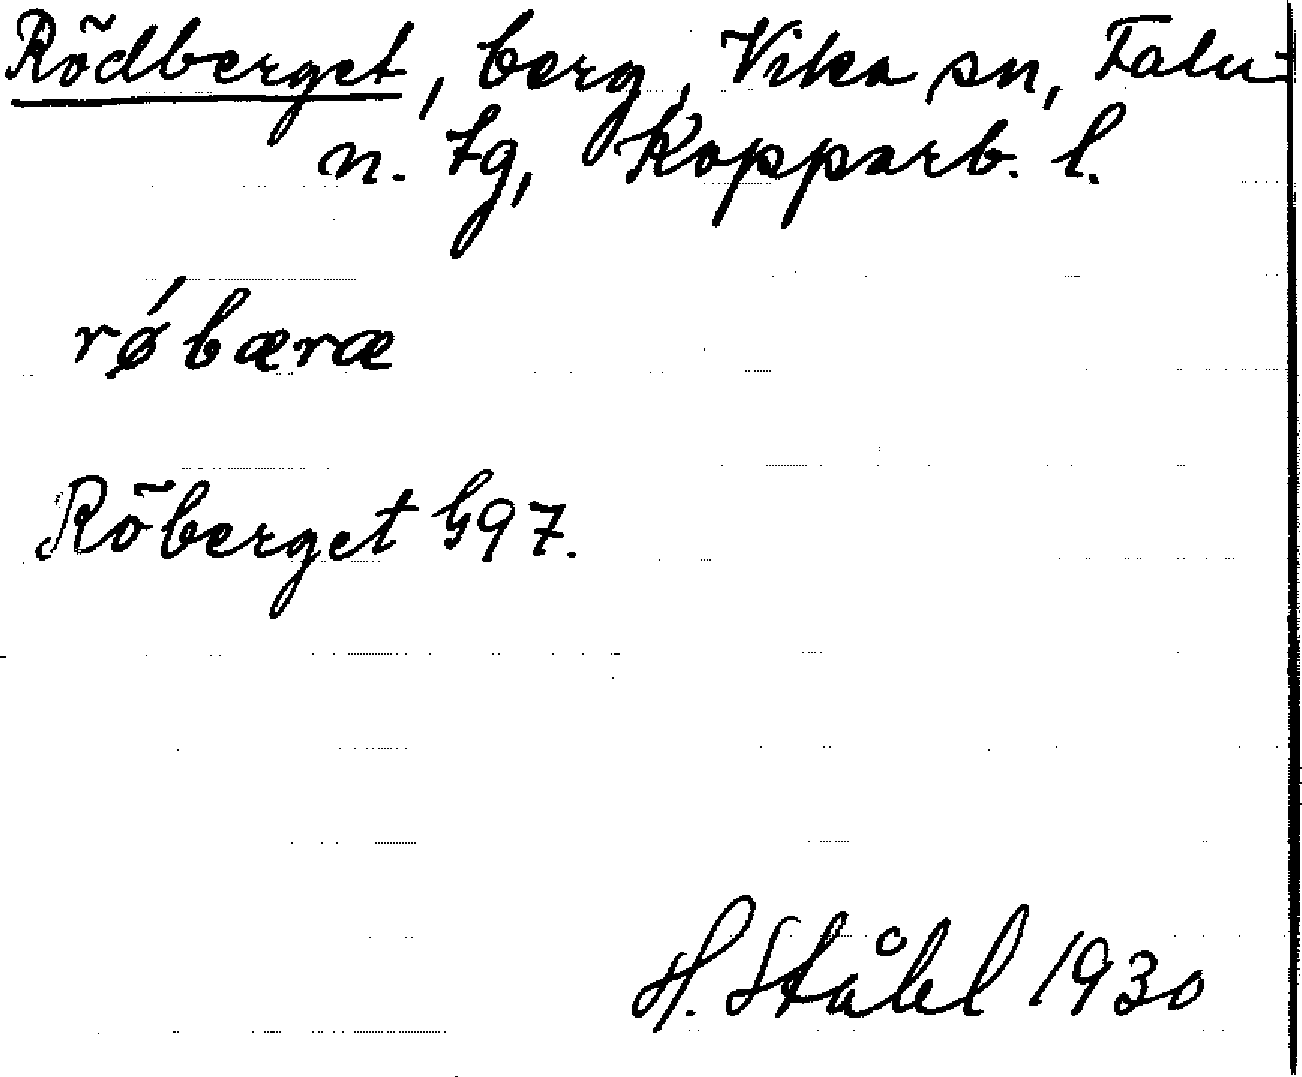 Rödberget, berg, Vika sn, Falu-
n. tg, Kopparb. l.
rǿbæræ
Röberget G97.
H. Ståhl 1930